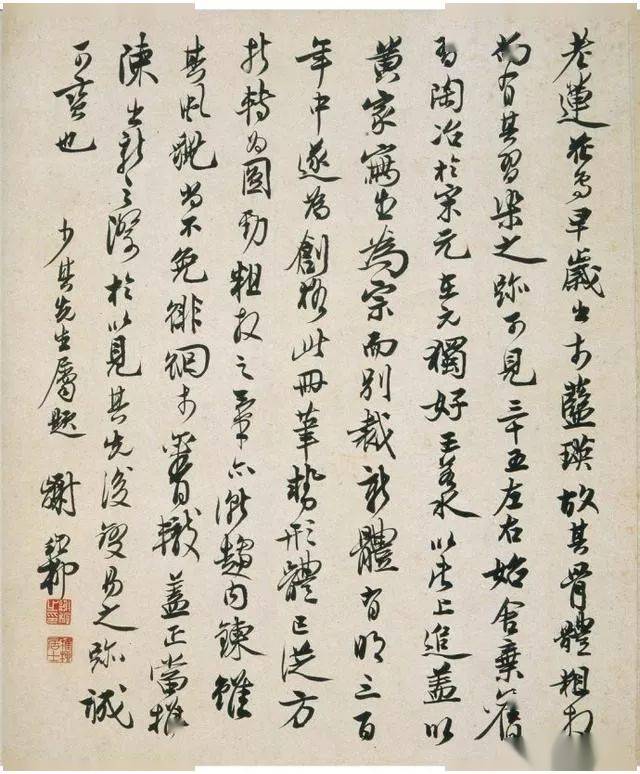 老蓮花鳥早歲出于藍瑛故其骨體粗
尚有其習染之跡可見三十五左右始舍棄舊
習陶冶於宋元在元獨好王若水以此上追蓋以
黃家寫生為宗而別裁新體有明三百
年中遂為創格此冊筆勢形體已從方
折轉為圓勁粗放之筆亦漸趨內鍊雖
其風貌尚不免徘徊于舊轍蓋正當推
陳出新之際於以見其先後變易之跡誠
可喜也
少其先生屬題 謝稚柳